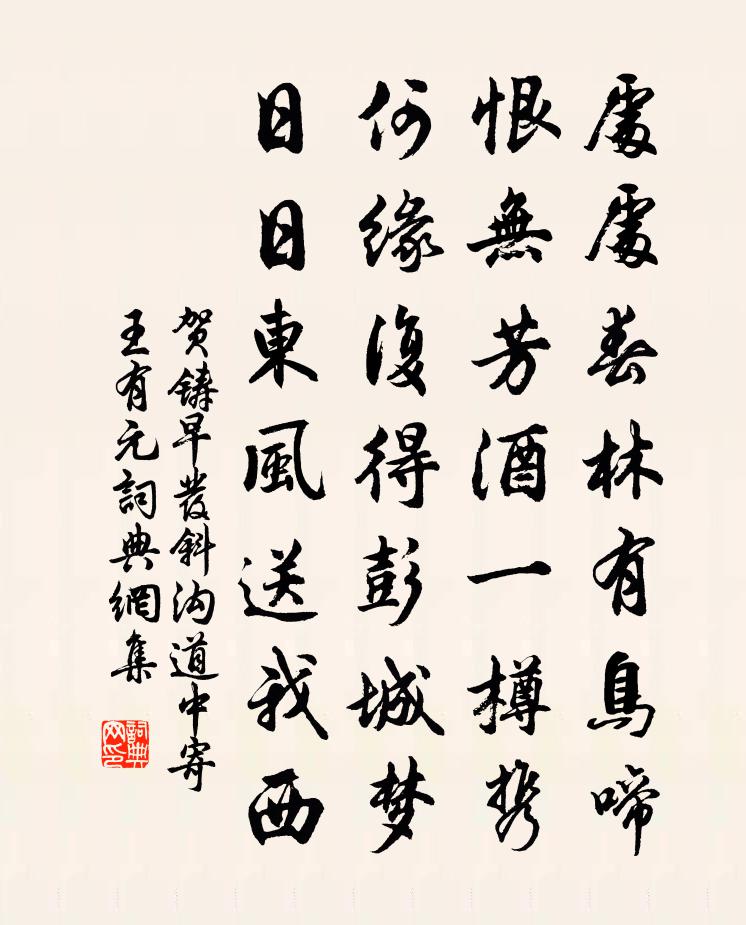 處處春林有鳥啼
恨無芳酒一樽携
何緣復得彭城梦
日日東風送我西
贺鑄早發斜沟道中寄
王有元詞典網集
詞典网印